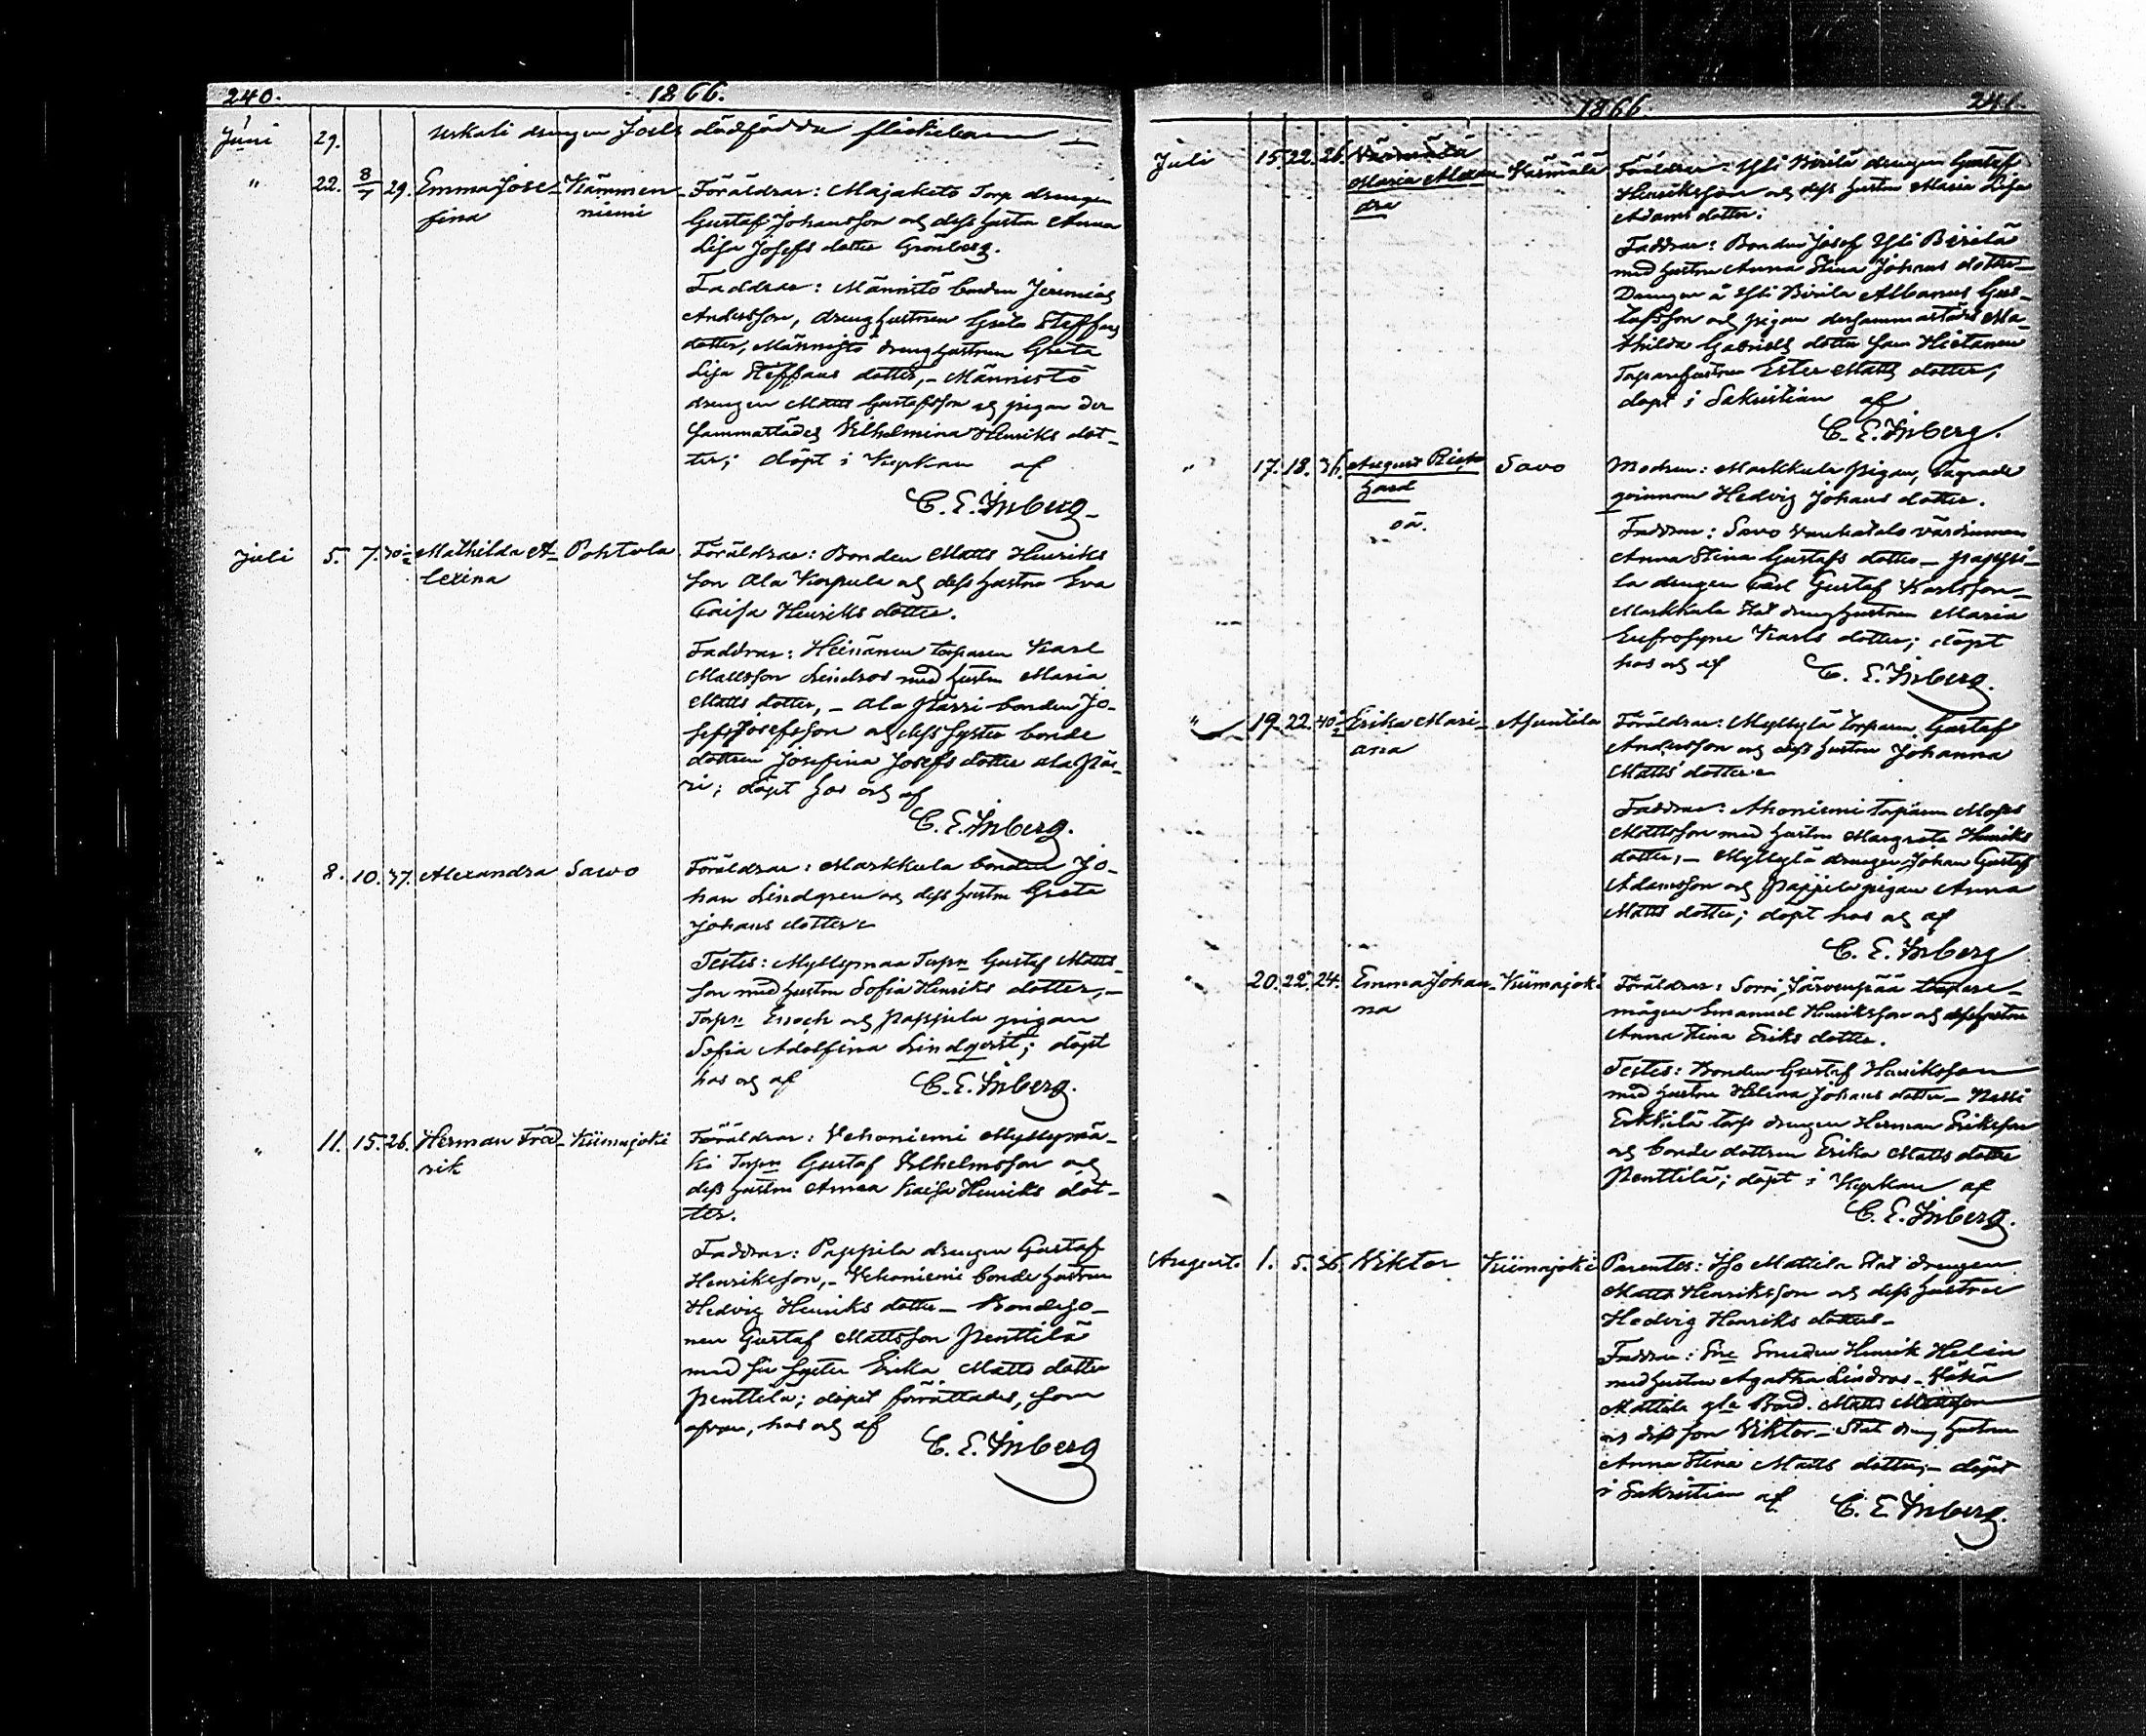 240. 1866.
Juni 29. drengen Joels dödfödda flickebarn —
" 22. 8/7 29. Emma Jose- Kämmen- Föräldrar: Majaketo Torp drengen
fina niemi Gustaf Johansson och dess hustru Anna
Lisa Josefs dotter Grönberg.
Faddrar: Männistö bonden Jeremias
Andersson, dreng hustrun Greta Steffans
dotter, Männistö dreng hustrun Greta
Lisa Steffans dotter, – Männistö
drengen Matts Gustafsson och pigan der
sammastädes Vilhelmina Henriks dot-
ter; döpt i Kyrkan af
C. E. Inberg.
Juli 5. 7. Mathilda A- Pohtola Föräldrar: Bonden Matts Henriks
lexina son Ala Korpula och dess hustru Eva
Caisa Henriks dotter.
Faddrar: Heinänen torparen Karl
Mattsson Lindros med hustru Maria
Matts dotter, – Ala Pärri bonden Jo-
sef Josefsson och dess syster bonde
dottren Josefina Josefs dotter Ala Pär-
ri; döpt hos och af
C. E. Inberg.
" 8. 10. 37. Alexandra Sawo Föräldrar: Markkula bonden Jo-
han Lindgren och dess hustru Greta
Johans dotter
Testes: Myllymaa Torpn Gustaf Matts-
son med hustru Sofia Henriks dotter, –
Torpn Enoch och Pappila pigan
Sofia Adolfina Lindqvist; döpt
hos och af C. E. Inberg.
" 11. 15. 26. Herman Fred- Kiimajoki Föräldrar: Vehoniemi Myllymä-
rik ki Torpn Gustaf Vilhelmsson och
dess hustru Anna Kaisa Henriks dot-
ter.
Faddrar: Pappila drengen Gustaf
Henriksson, – Vehoniemi bonde hustrun
Hedvig Henriks dotter – Bondeso-
nen Gustaf Mattsson Penttilä
med sin syster Erika Matts dotter
Penttilä; döpet förrättades, som
ofvan, hos och af
C. E. Inberg
1866. 241.
Juli 15. 22. 26. Maria Alexan- Kärmälä Föräldrar: Yli Birilä drengen Gustaf
dra Henriksson och dess hustru Maria Lisa
Adams dotter.
Faddrar: Bonden Josef Yli Birilä
med hustru Anna Stina Johans dotter –
Drengen å Yli Birilä Albanus Gus-
tafsson och pigan dersammastädes Ma-
thilda Gabriels dotter samt Hietanen
Torparehustrun Ester Matts dotter;
döpt i Sakristian af
C. E. Inberg.
" 17. 18. 36. August Rich- Savo Modren: Markkula pigan, lägrade
hard qvinnan Hedvig Johans dotter.
oä. Faddrar: Savo värdinnan
Anna Stina Gustafs dotter – Pappi-
la drengen Carl Gustaf Karlsson –
Markkula Stat dreng hustrun Maria
Eufrosyne Karls dotter; döpt
hos och af C. E. Inberg.
" 19. 22. Erika Mari- Asuntila Föräldrar: Myllylä torparen Gustaf
ana Andersson och dess hustru Johanna
Matts dotter
Faddrar: Ahoniemi torparen Moses
Mattsson med hustru Margreta Henriks
dotter, – Myllylä drengen Johan Gustaf
Adamsson och Pappila pigan Anna
Matts dotter; döpt hos och af
C. E. Inberg
" 20. 22. 24. Emma Johan- Kiimajoki Föräldrar: Sorri, Järvenpää torpare-
na mågen Emanuel Henriksson och dess hustru
Anna Stina Eriks dotter.
Testes: Bonden Gustaf Henriksson
med hustru Helena Johans dotter –
Erkkilä torp drengen Herman Eriksson
och bonde dottren Erika Matts dotter
Penttilä; döpt i Kyrkan af
C. E. Inberg.
Augusti. 1. 5. 36. Viktor Kiimajoki Parentes: Iso Mattila Stat drengen
Matts Henriksson och dess hustru
Hedvig Henriks dotter –
Faddrar: Smeden Henrik Helin
med hustru Agatha Lindros –
Mattila Bond. Matts Mattsson
och dess son Viktor – Stat dreng hustrun
Anna Stina Matts dotter; – döpt
i Sakristian af C. E. Inberg.